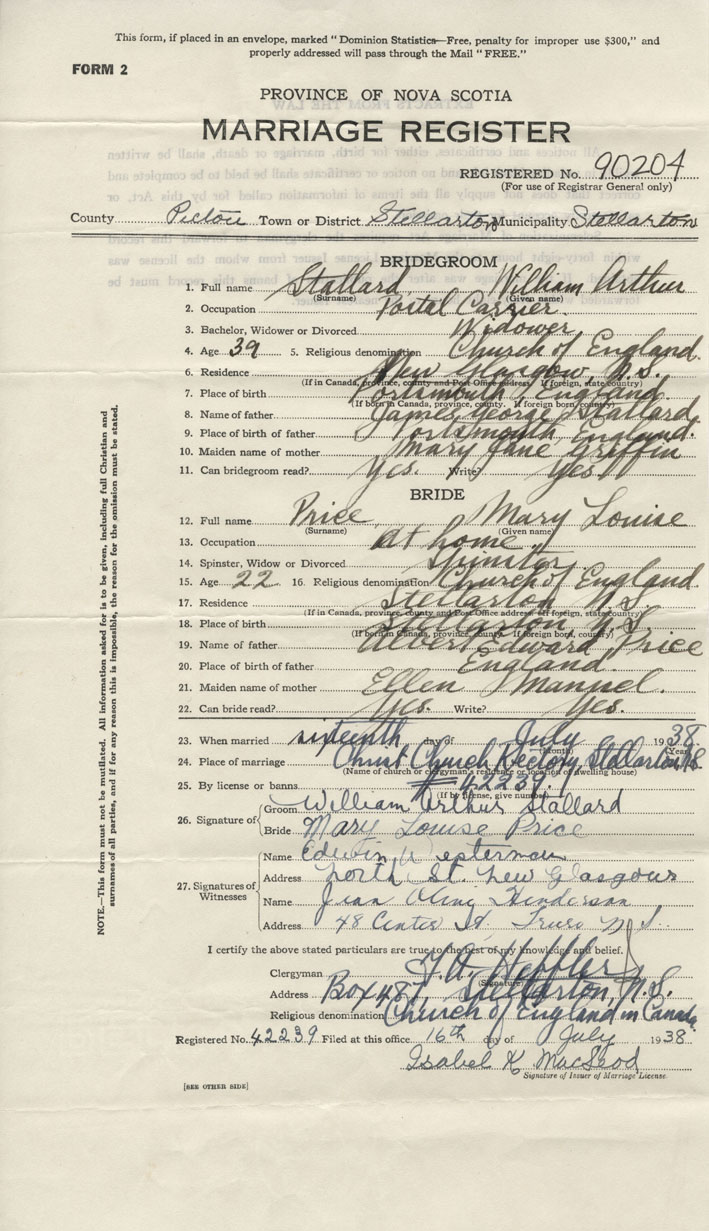 This form, if placed in an envelope, marked "Dominion Statistics—Free, penalty for improper use $300," and
properly addressed will pass through the Mail "FREE."
FORM 2
PROVINCE OF NOVA SCOTIA
MARRIAGE REGISTER
REGISTERED No. 90204
(For use of Registrar General only)
County Pictou Town or District Stellarton Municipality Stellarton
BRIDEGROOM
1. Full name Stallard William Arthur
(Surname) (Given name)
2. Occupation Postal Carrier
3. Bachelor, Widower or Divorced Widower
4. Age 39 5. Religious denomination Church of England
6. Residence New Glasgow, N.S.
(If in Canada, province, county and Post Office address. If foreign, state country)
7. Place of birth Portsmouth, England
(If born in Canada, province, county. If foreign born, country)
8. Name of father James George Stallard
9. Place of birth of father Portsmouth, England.
10. Maiden name of mother Mary Jane Griffin
11. Can bridegroom read? Yes. Write? Yes.
BRIDE
12. Full name Price Mary Louise
(Surname) (Given name)
13. Occupation At home
14. Spinster, Widow or Divorced Spinster
15. Age 22 16. Religious denomination Church of England
17. Residence Stellarton N.S.
(If in Canada, province, county and Post Office address. If foreign, state country)
18. Place of birth Stellarton, N.S.
(If born in Canada, province, county. If foreign born, country)
19. Name of father Albert Edward Price
20. Place of birth of father England.
21. Maiden name of mother Ellen Manuel.
22. Can bride read? Yes. Write? Yes.
23. When married sixteenth day of July 1938
(Month) (Year)
24. Place of marriage Christ Church Rectory, Stellarton N.S.
(Name of church or clergyman's residence or location of dwelling house)
25. By license or banns # 42239.
(If by license, give number)
26. Signature of Groom William Arthur Stallard
Bride Mary Louise Price
27. Signatures of Witnesses
Name Edwin Westerman
Address North St. New Glasgow
Name Jean Henderson
Address 48 Center St. Truro N.S.
I certify the above stated particulars are true to the best of my knowledge and belief.
Clergyman Heffler
(Signature)
Address Box 487 Stellarton, N.S.
Religious denomination Church of England in Canada.
Registered No. 42239 Filed at this office 16th day of July 1938.
Isabel K. MacLeod
Signature of Issuer of Marriage License.
[SEE OTHER SIDE]
NOTE.—This form must not be mutilated. All information asked for is to be given, including full Christian and
surnames of all parties, and if for any reason this is impossible, the reason for the omission must be stated.